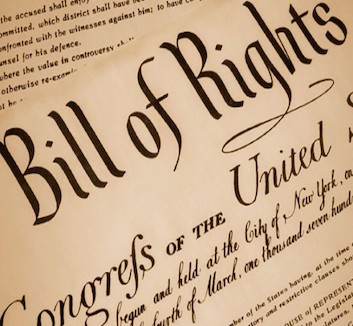 the accused shall enjoy
ommitted, which district shall have
onfronted with the witnesses against him; to have
unsel for his defence.
where the value in controversy
otherwise re-exami
Bill of Rights
Congreſs OF THE United
begun and held at the City of New York, on
fourth of March, one thousand seven hund
mber of the States having, at the time
ory and restrictive clauses
OUSE of REPRESEN